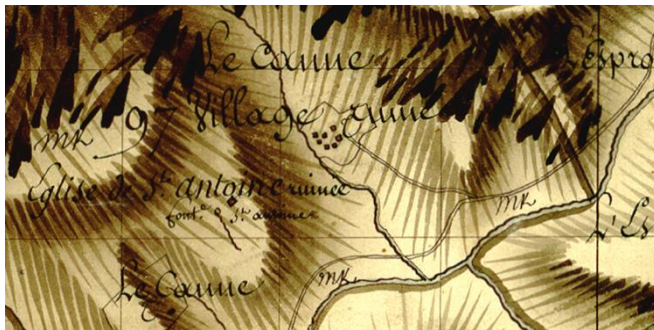 Le Canne
Lespro
97 Village ruiné
mk
Eglise de St. antoine ruinée
font.e di St. antoine
mk
L'Es
Le Canne
mk